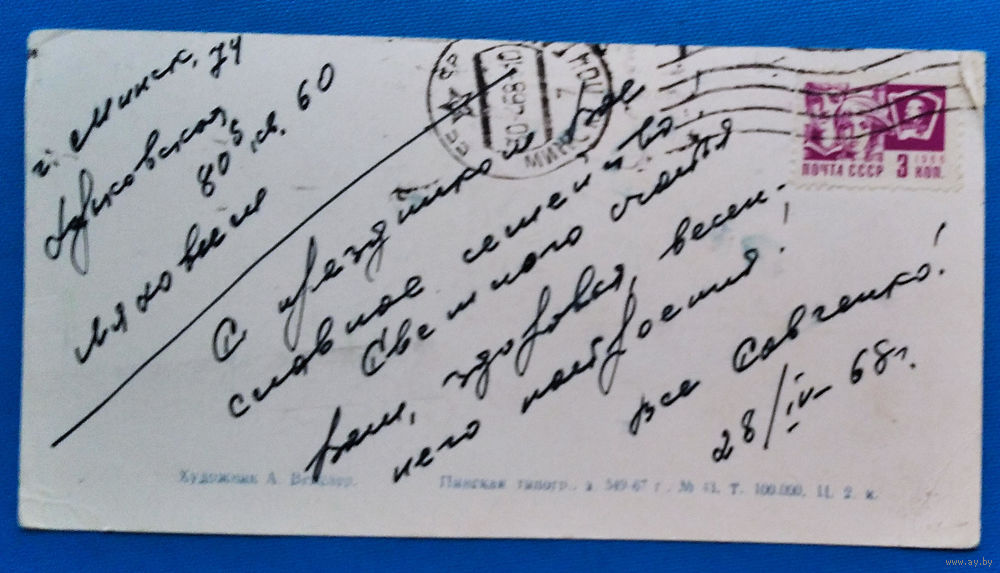 г. Минск, 74
80б кв. 60
С праздником все
славное семейство.
Свем много счастья
Вам, здоровья, весен-
него настроения!
Все Савченко!
28/IV-68 г.
МИНСК
ПОЧТА СССР 3 КОП.
1966
Художник А.
Пинская типогр. з. 549-67 г. № 41. Т. 100.000. Ц. 2 к.
www.ay.by